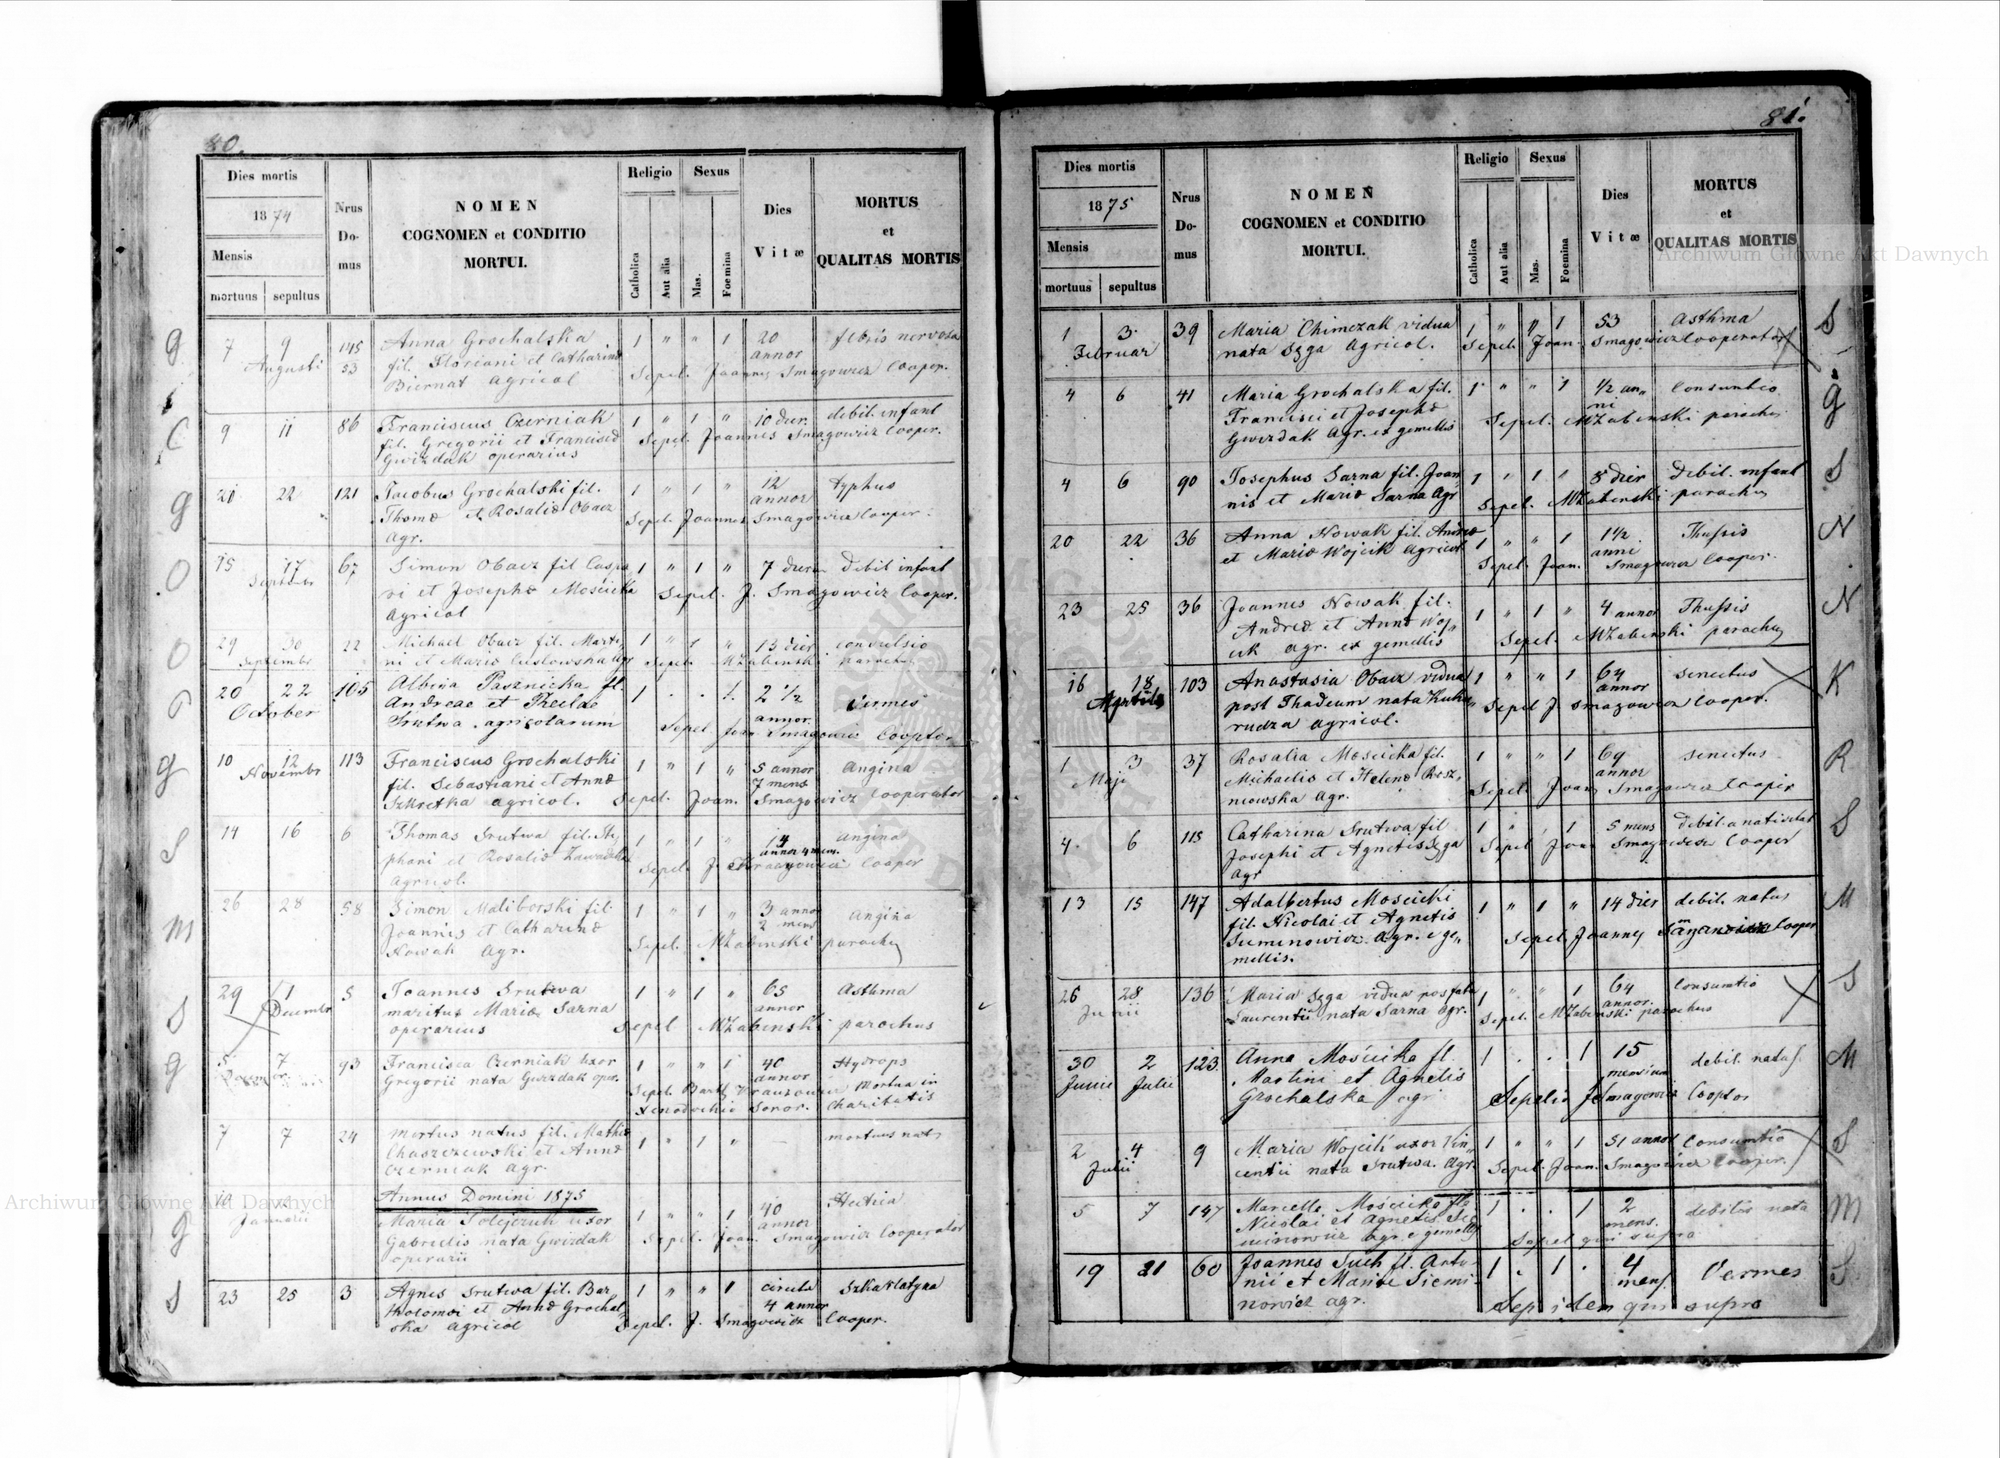 80.
Dies mortis
1874
Mensis
mortuus sepultus
Nrus Do- mus
NOMEN
COGNOMEN et CONDITIO
MORTUI.
Religio
Catholica
Aut alia
Sexus
Mas.
Foemina
Dies
Vitæ
MORTUS
et
QUALITAS MORTIS
G 7 9 145 Anna Grochalska 1 " " 1 20 febris nervosa
Augusti 53 fil. Floriani et Catharinæ annor
Biernat Agricol Sepel. Joannes Smagowicz Cooper.
C 9 11 86 Franciscus Czerniak 1 " 1 " 10 dier. debil. infant
fil. Gregorii et Franciscæ Sepel. Joannes Smagowicz Cooper.
Gwizdak operarius
G 20 22 121 Jacobus Grochalski fil. 1 " 1 " 12 typhus
Thomæ et Rosaliæ Obacz annor
Agr. Sepel. Joannes Smagowicz Cooper.
O 15 17 67 Simon Obacz fil Caspa 1 " 1 " 7 dier debil infant
Septembr ri et Josephæ Mościcka Sepel. J. Smagowicz Cooper.
Agricol
O 29 30 22 Michael Obacz fil. Marti 1 " 1 " 13 dier convulsio
Septembr ni et Mariæ Agr Sepel. MZabenski parochus
20 22 105 Albina Pasznicka fl. 1 . . 1. 2 1/2 Vermes
October Andreae et Theclæ annor.
Srutwa agricolarum Sepel Joan. Smagowic Cooptor
G 10 12 113 Franciscus Grochalski 1 " 1 " 5 annor Angina
Novembr fil. Sebastiani et Annæ 7 mens
Szkretka agricol. Sepel. Joan. Smagowicz Cooperator
S 14 16 6 Thomas Srutwa fil. Ste 1 " 1 " 14 angina
phani et Rosaliæ annor 4 men.
Agricol. Sepel. J. Cooper
M 26 28 58 Simon Maliborski fil. 1 " 1 " 3 annor Angina
Joannis et Catharinæ 2 mens
Nowak Agr. Sepel. MZabinski parochus
S 29 1 5 Joannes Srutwa 1 " 1 " 65 Asthma
Decembr maritus Mariæ Sarna annor
operarius Sepel MZabenski parochus
G 5 7 93 Francisca Czerniak uxor 1 " " 1 40 Hydrops
Gregorii nata Gwizdak oper. annor
Sepel. Mortua in
Xenodochio Soror. Charitatis
7 7 24 Mortus natus fil. Mathiæ 1 " 1 " - mortuus nats
Chaszczewski et Annæ
Czerniak Agr.
Annus Domini 1875
G 10 Maria uxor 1 " " 1 40 Hectica
Januarii Gabrielis nata Gwizdak annor
operarii Sepel. Joan. Smagowicz Cooperator
S 23 25 3 Agnes Srutwa fil. Bar 1 " " 1 circula Szkarlatyna
tholomei et Annæ Grochal 4 annor
ska Agricol Sepel. J. Smagowicz Cooper.
81.
Dies mortis
1875
Mensis
mortuus sepultus
Nrus Do- mus
NOMEN
COGNOMEN et CONDITIO
MORTUI.
Religio
Catholica
Aut alia
Sexus
Mas.
Foemina
Dies
Vitæ
MORTUS
et
QUALITAS MORTIS
1 3 39 Maria Chimczak vidua 1 " " 1 53 Asthma S
Februar nata Sęga Agricol. Sepel. Joan. Smagowicz Cooperator
4 6 41 Maria Grochalska fil. 1 " " 1 1/2 an Consumtio G
Francisci et Josephæ ni
Gwizdak Agr. ex gemellis Sepel. MZabenski parochus
4 6 90 Josephus Sarna fil. Joan 1 " 1 " 8 dier Debil. infant S
nis et Mariæ Sarna Agr Sepel. MZabenski parochus
20 22 36 Anna Nowak fil. Andreæ 1 " " 1 1 1/2 Thussis N
et Mariæ Wojcik Agricol anni
Sepel. Joan. Smagowicz Cooper.
23 25 36 Joannes Nowak fil. 1 " 1 " 4 annor Thussis N
Andreæ et Annæ Woj
cik agr. ex gemellis Sepel. MZabenski parochus
16 18 103 Anastasia Obacz vidua 1 " " 1 64 senectus K
Aprilis post Thadeum nata Kuku annor
rudza agricol. Sepel J. Smagowicz Cooper.
1 3 37 Rosalia Mościcka fil. 1 " " 1 69 Senectus R
Maji Michaelis et Helenæ Rosz annor
niowska Agr. Sepel. Joan Smagowicz Cooper
4 6 115 Catharina Srutwa fil 1 " . 1 5 mens debil. a nativitat S
Josephi et Agnetis Sęga Sepel Joan Smagowicz Cooper
Agr
13 15 147 Adalbertus Mościcki 1 " 1 " 14 dier debil. natus M
fil. Nicolai et Agnetis
Siminowicz Agr. e ge Sepel. Joannes Cooper
mellis.
26 28 136 Maria Sęga vidua post fata 1 " " 1 64 Consumtio S
Junii Laurentii nata Sarna Agr. annor.
Sepel. MZabenski parochus
30 2 123. Anna Mościcka fl. 1 . . 1 15 debil. natus. M
Junii Julii Martini et Agnetis mensium
Grochalska agr Sepelio JSmagowicz Cooptor
2 4 9 Maria Wojcik uxor Vin 1 " " 1 51 annor Consumtio S
Julii centii nata Srutwa. Agr. Sepel. Joan. Smagowicz Cooper.
5 7 147 Marcella Mościcka fla 1 . . 1 2 debilis nata M
Nicolai et Agnetis Sie mens.
minowicz Agr. e gemellis Sepel qui supra
19 21 60 Joannes Such fl. Anto 1 . 1 . 4 Vermes S
nii et Mariæ Siemi mens.
nowicz agr. Sep idem qui supra
Archiwum Główne Akt Dawnych
Archiwum Główne Akt Dawnych